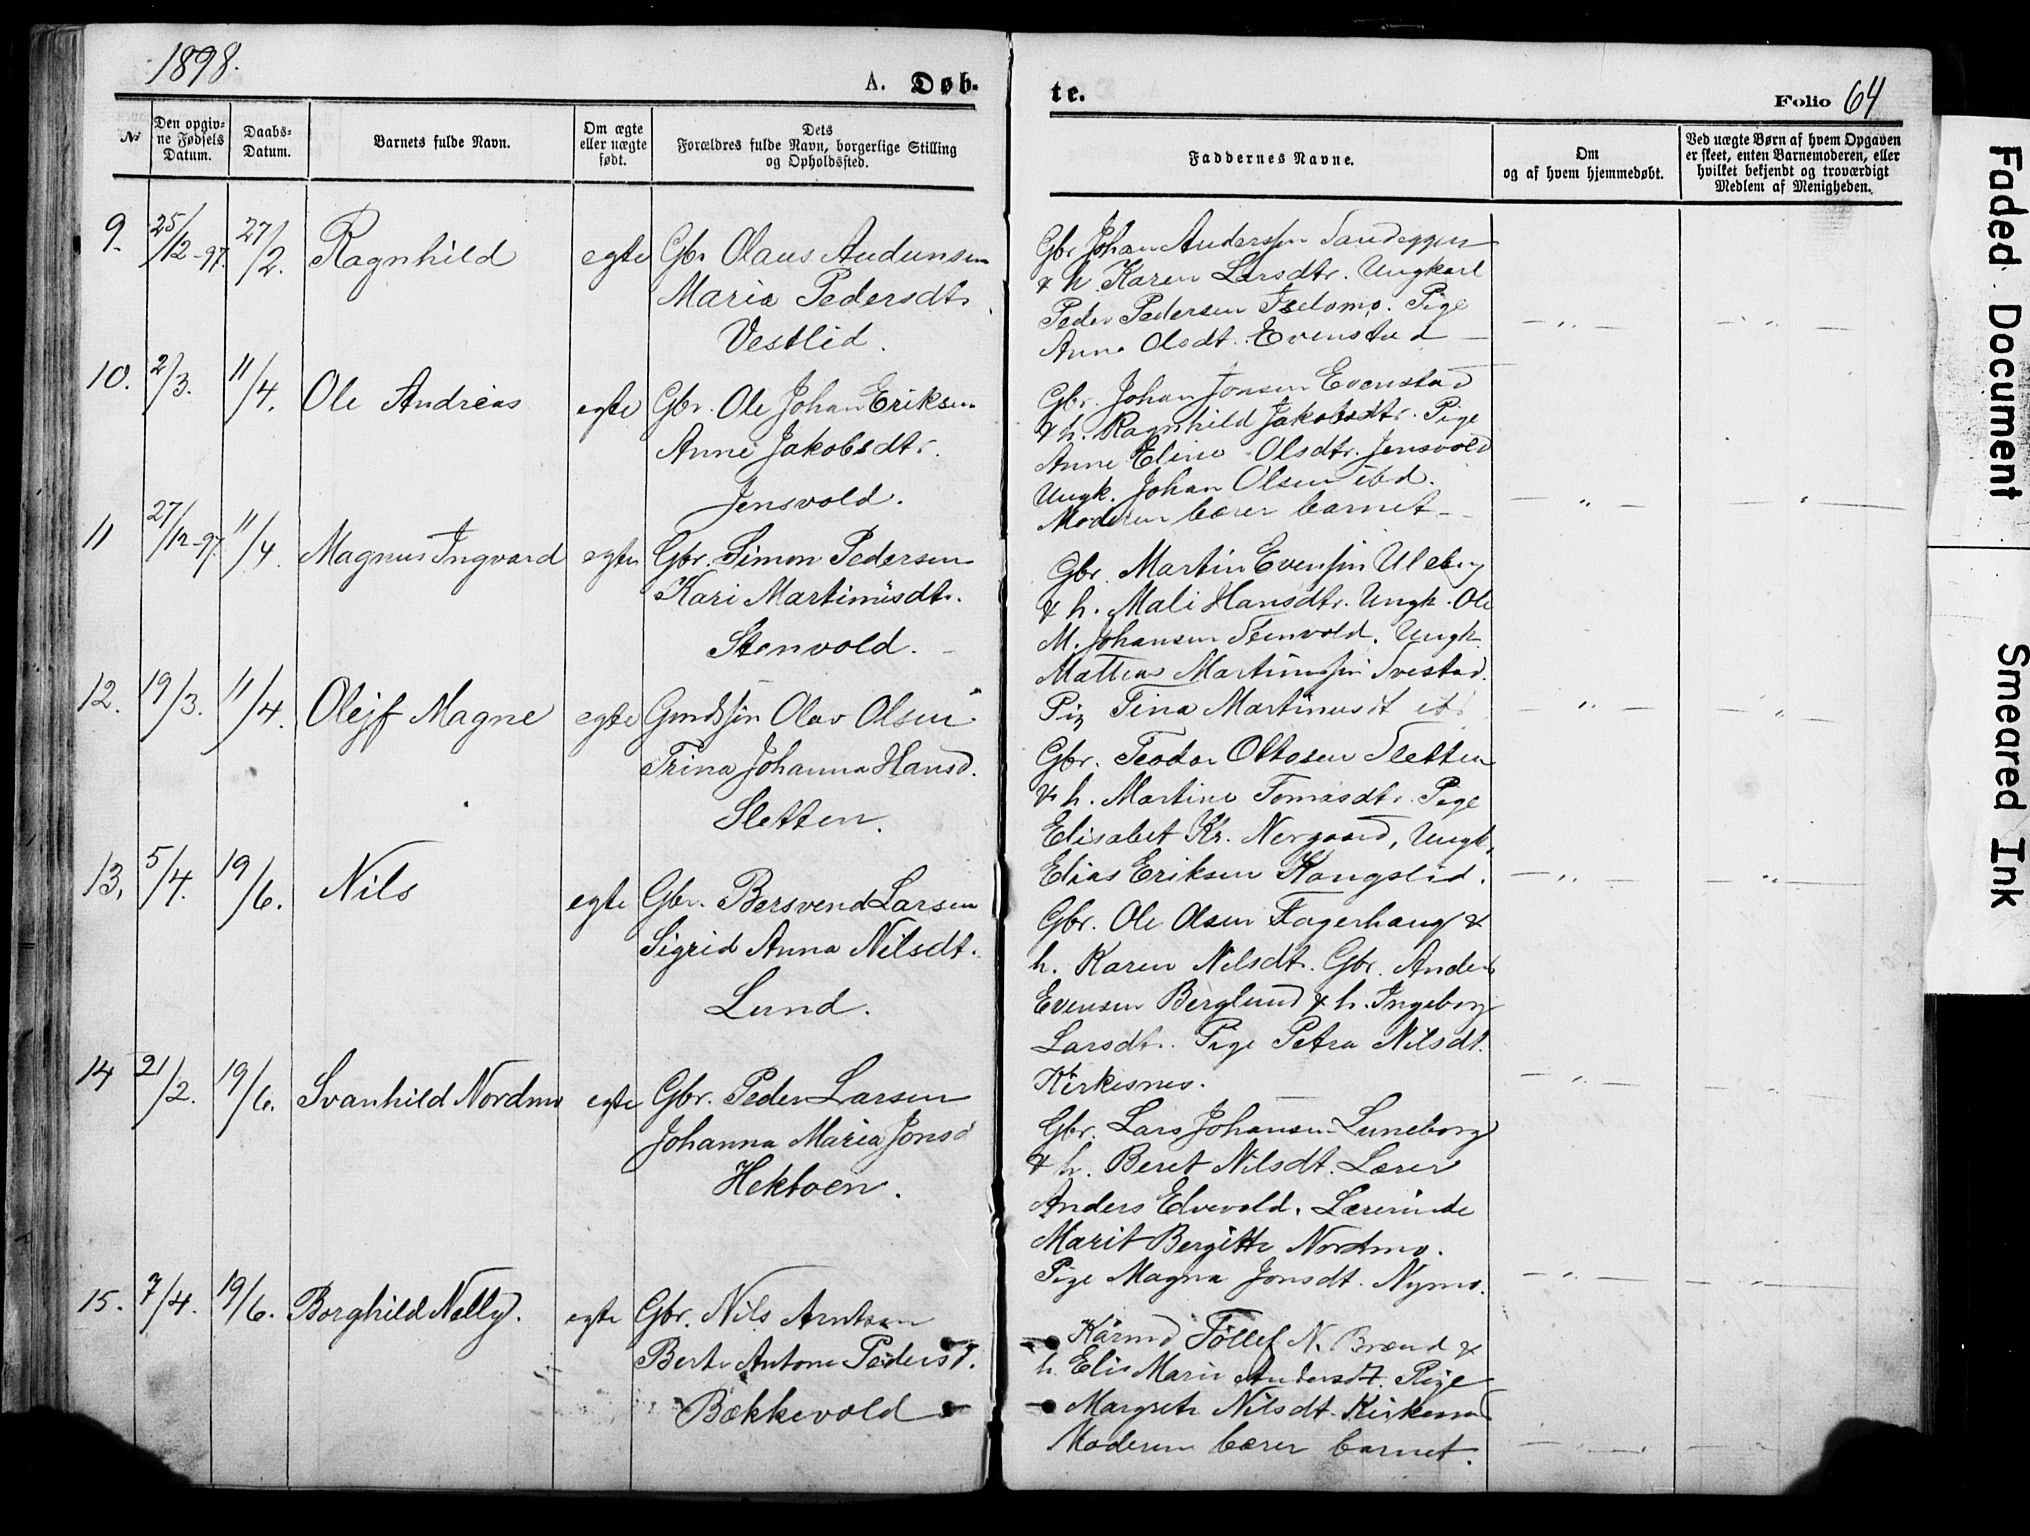 1898.
A. Døb-
te.
Folio 64
№
Den opgiv-
ne Fødsels
Datum.
Daabs-
Datum.
Barnets fulde Navn.
Om ægte
eller uægte
født.
Dets
Forældres fulde Navn, borgerlige Stilling
og Opholdssted.
Faddernes Navne.
Om
og af hvem hjemmedøbt.
Ved uægte Børn af hvem Opgaven
er skeet, enten Barnemoderen, eller
hvilket bekjendt og troværdigt
Medlem af Menigheden.
9. 25/12-97. 27/2. Ragnhild egte Gbr Olaus Audunsen
Maria Pedersdtr.
Vestlid.
Gbr Johan Anderssen Sandeggen
& h. Karen Larsdtr. Ungkarl
Peder Pedersen Iselomo. Pige
Anne Olsdt. Evenstad
10. 2/3. 11/4. Ole Andreas egte Gbr. Ole Johan Eriksen
Anne Jakobsdtr.
Jensvold.
Gbr. Johan Jonsen Evenstad
& h. Ragnhild Jakobsdtr. Pige
Anne Eline Olsdtr. Jensvold
Ungk. Johan Olsen ibd.
Moderen bærer barnet
11 27/12-97 11/4. Magnus Ingvard egte Gbr. Simon Pedersen
Kari Martinusdt.
Stenvold.
Gbr. Martin Evensen Uleberg
& h. Mali Hansdtr. Ungk. Ole
M. Johansen Stenvold. Ungk.
Mattias Martinussen Svestad.
Pig Tina Martinusdt ibd
12. 19/3. 11/4. Olejf Magne egte Gmdssøn Olav Olsen
Trina Johanna Hansd.
Sletten.
Gbr. Teodor Ottosen Sletten
& h. Martine Tomasdt. Pige
Elisabet Kr. Nergaard, Ungk.
Elias Eriksen Kongslid.
13, 5/4. 19/6. Nils egte Gbr. Bersvend Larsen
Sigrid Anna Nilsdt.
Lund.
Gbr. Ole Olsen Fagerhaug &
h. Karen Nilsdt. Gbr. Anders
Evensen Berglund & h. Ingeborg
Larsdtr. Pige Petra Nilsdt.
Kirkesnes.
14 21/2. 19/6. Svanhild Nordmo egte Gbr. Peder Larsen
Johanna Maria Jonsd
Hektoen.
Gbr. Lars Johansen Luneborg
& h. Beret Nilsdt. Lærer
Anders Elvevold. Lærerinde
Marit Bergitte Nordmo.
Pige Magna Jonsdt. Nymo.
15. 7/4. 19/6. Borghild Nelly. egte Gbr. Nils Arntsen
Berte Antone Pedersd.
Bækkevold
Kårmd Tollef N. Brænd &
h. Elis Marie Andersdt. Pige
Margrete Nilsdt. Kirkesnes
Moderen bærer barnet.
Faded Document
Smeared Ink